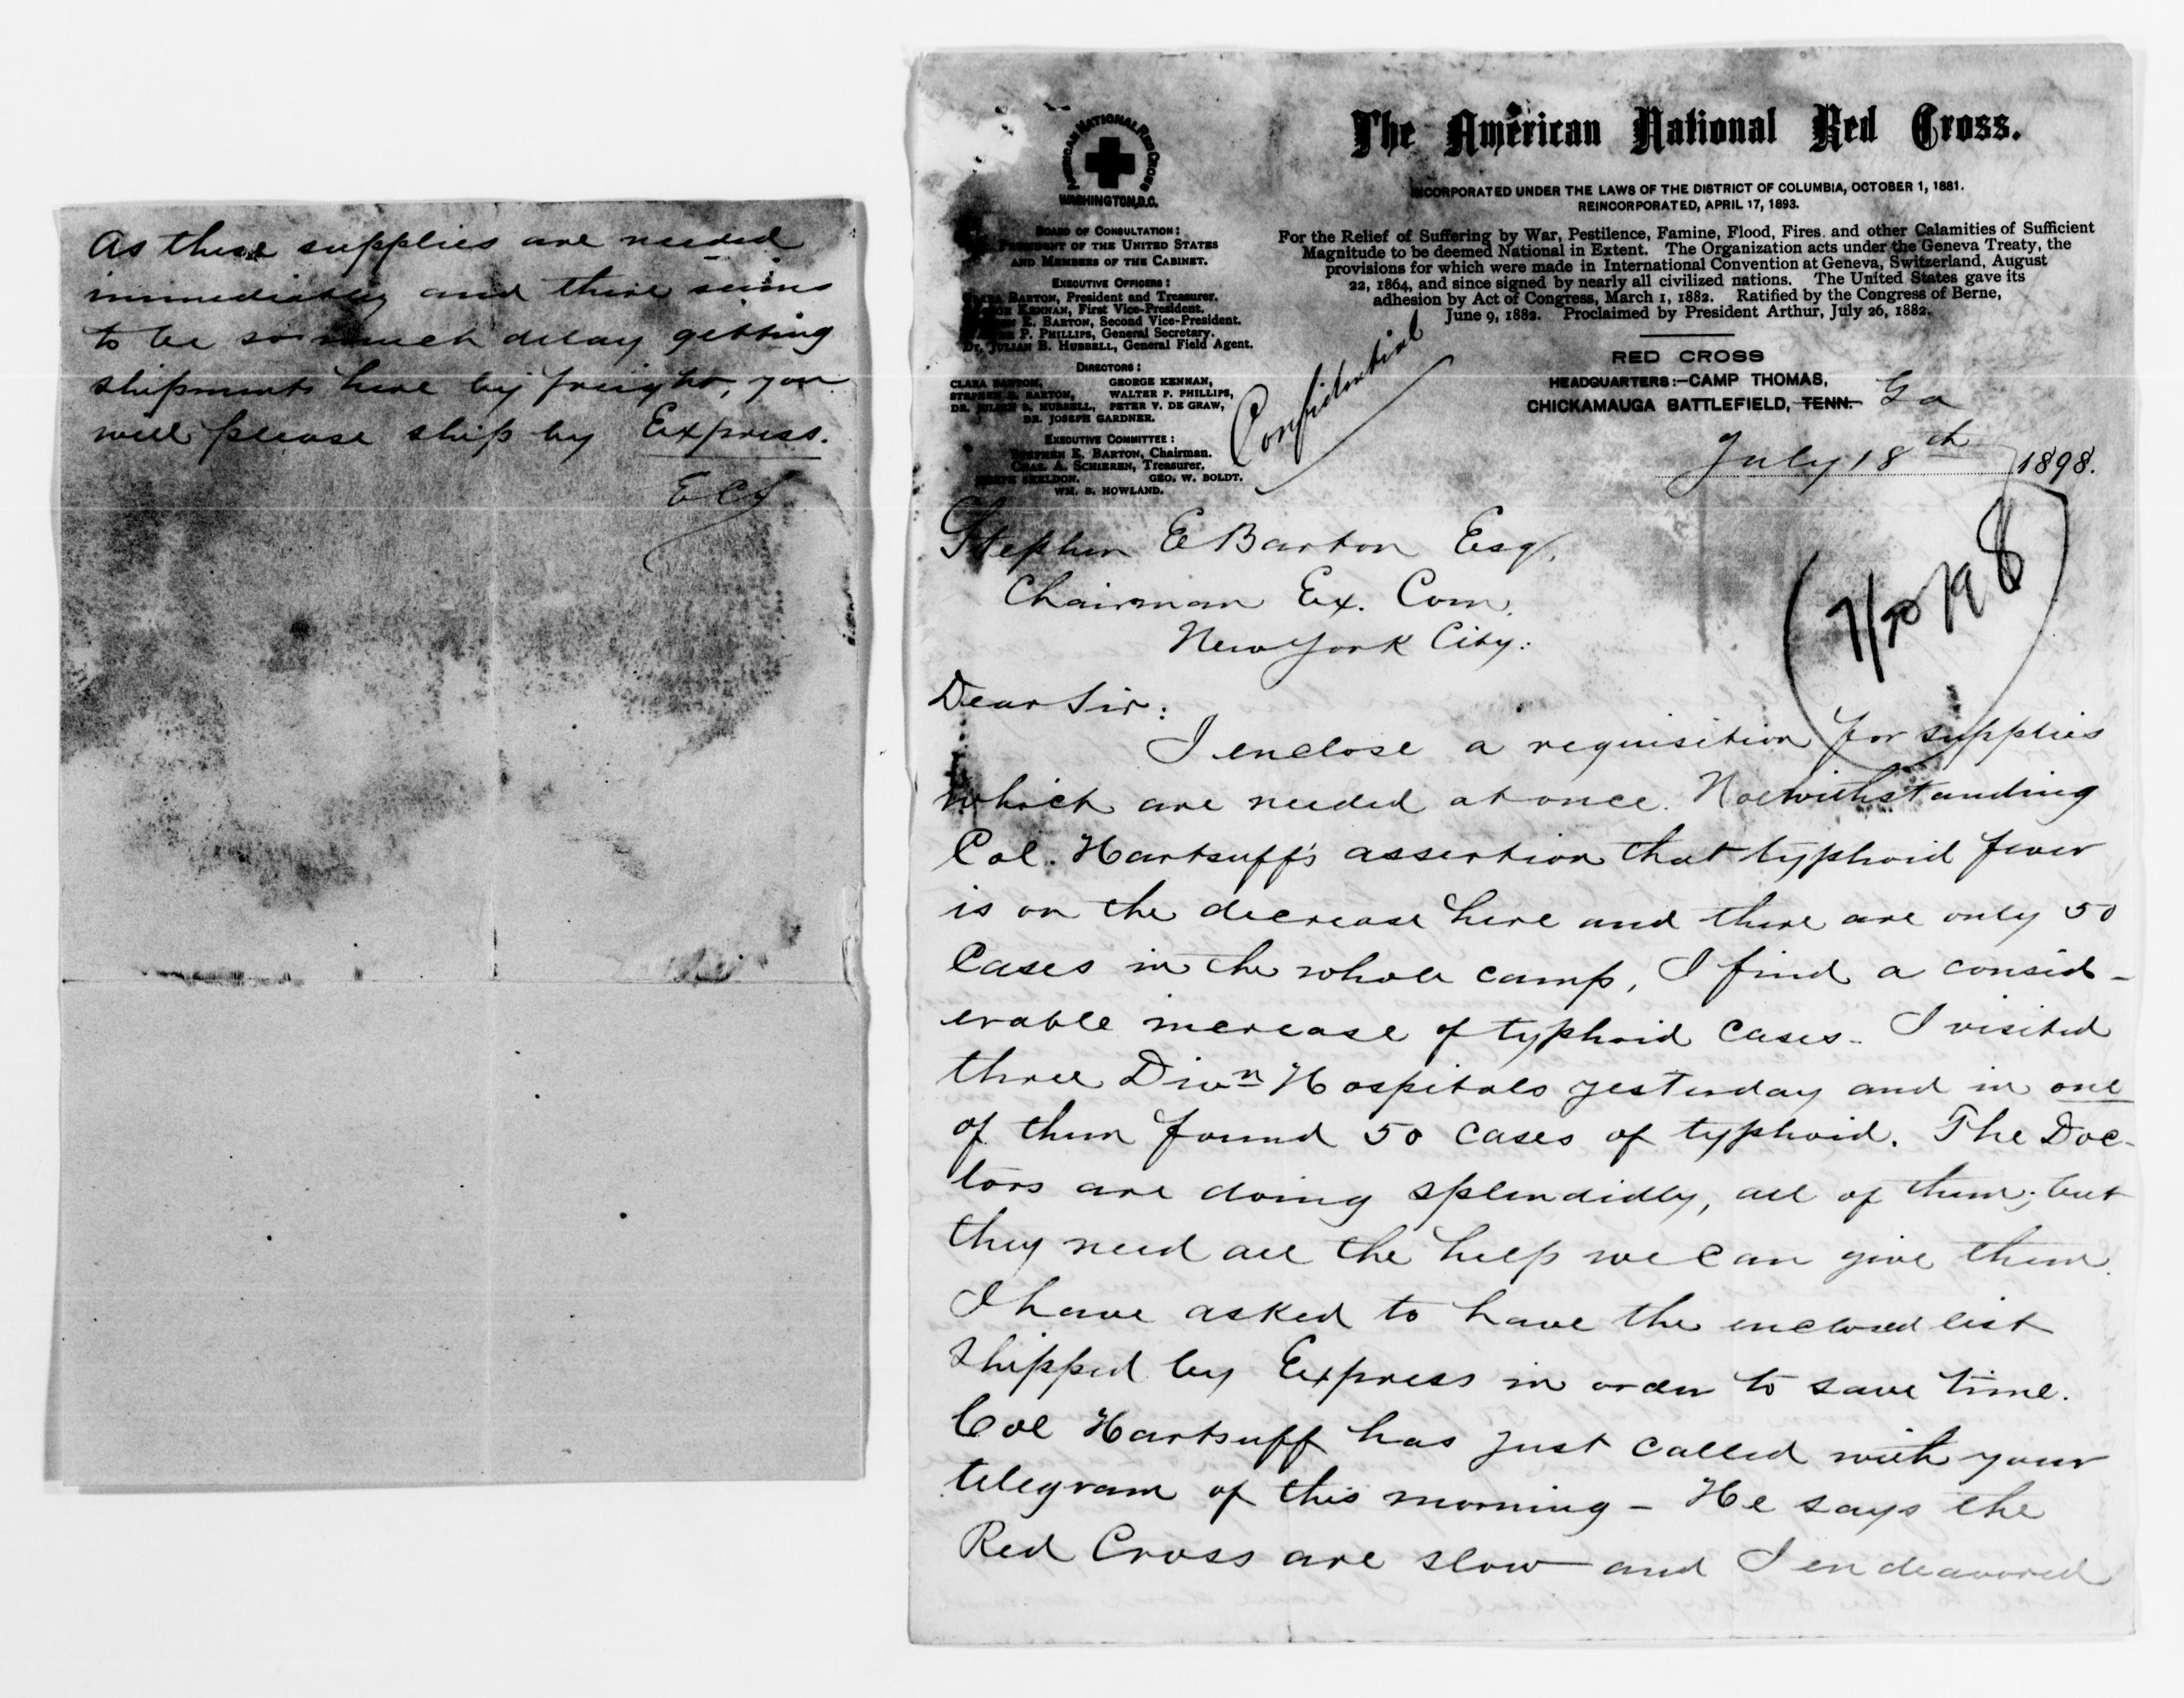 As these supplies are needed
immediately and there seems
to be so much delay getting
shipments here by freight, you
will please ship by Express.
AMERICAN NATIONAL RED CROSS
WASHINGTON, D.C.
BOARD OF CONSULTATION:
PRESIDENT OF THE UNITED STATES
AND MEMBERS OF THE CABINET.
EXECUTIVE OFFICERS:
CLARA BARTON, President and Treasurer.
KENNAN, First Vice-President.
E. BARTON, Second Vice-President.
P. PHILLIPS, General Secretary.
DR. JULIAN B. HUBBELL, General Field Agent.
DIRECTORS:
CLARA BARTON, GEORGE KENNAN,
STEPHEN E. BARTON, WALTER P. PHILLIPS,
DR. JULIAN B. HUBBELL, PETER V. DE GRAW,
DR. JOSEPH GARDNER.
EXECUTIVE COMMITTEE:
STEPHEN E. BARTON, Chairman.
CHAS. A. SCHIEREN, Treasurer.
JOSEPH SHELDON. GEO. W. BOLDT.
WM. B. HOWLAND.
Confidential
The American National Red Cross.
INCORPORATED UNDER THE LAWS OF THE DISTRICT OF COLUMBIA, OCTOBER 1, 1881.
REINCORPORATED, APRIL 17, 1893.
For the Relief of Suffering by War, Pestilence, Famine, Flood, Fires. and other Calamities of Sufficient
Magnitude to be deemed National in Extent. The Organization acts under the Geneva Treaty, the
provisions for which were made in International Convention at Geneva, Switzerland, August
22, 1864, and since signed by nearly all civilized nations. The United States gave its
adhesion by Act of Congress, March 1, 1882. Ratified by the Congress of Berne,
June 9, 1882. Proclaimed by President Arthur, July 26, 1882.
RED CROSS
HEADQUARTERS:—CAMP THOMAS,
CHICKAMAUGA BATTLEFIELD, TENN. Ga
July 18th 1898.
Stephen E Barton Esq.
Chairman Ex. Com.
New York City:
(7/20/98)
Dear Sir:
I enclose a requisition for supplies
which are needed at once. Notwithstanding
Col. Hartsuff's assertion that typhoid fever
is on the decrease here and there are only 50
Cases in the whole camp, I find a consid-
erable increase of typhoid cases. I visited
three Divn Hospitals yesterday and in one
of them found 50 cases of typhoid. The Doc-
tors are doing splendidly, all of them; but
they need all the help we can give them.
I have asked to have the enclosed list
shipped by Express in order to save time.
Col Hartsuff has just called with your
telegram of this morning - He says the
Red Cross are slow and I endeavored